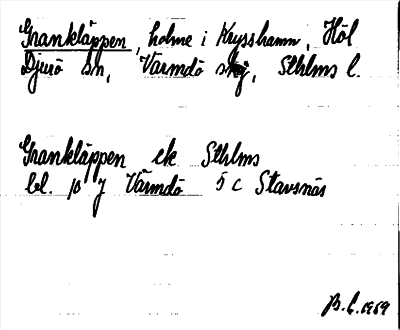 Grankläppen, holme i Krysshamn, Höl
Djurö sn, Värmdö skg, Sthlms l.
Grankläppen ek Sthlms
bl. 10 7 Värmdö 5 c Stavsnäs
B.C. 1959